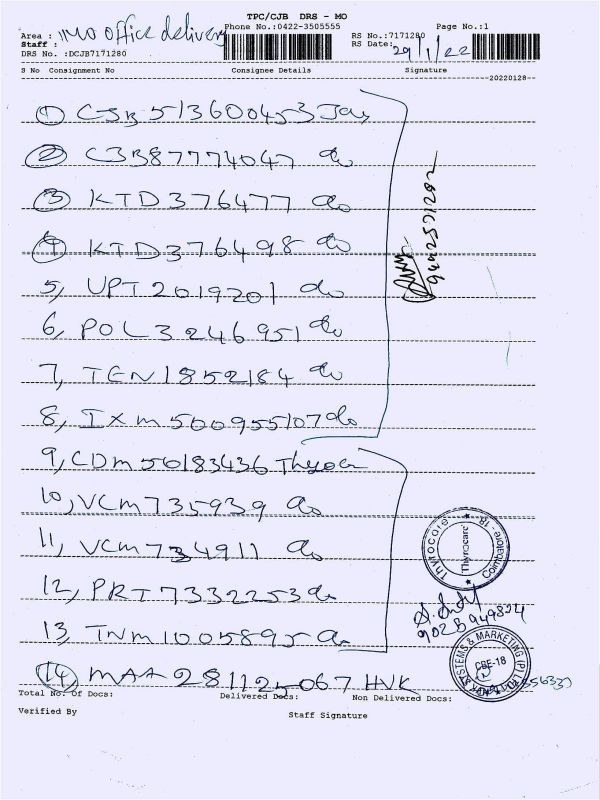 TPC/CJB DRS - MO
Phone No.:0422-3505555
Page No.:1
Area : IMO office delivery
RS No.:7171280
Staff :
RS Date: 29/1/22
DRS No. :DCJB7171280
S No Consignment No Consignee Details Signature
20220128--
① CJB 513600453
② CJB87774047 do
③ KTD376477 do
④ KTD376498 do
5, UPT2019201 do
6, POL3246951 do
7, TEN1852184 do
8, IXM500955107 do
9, CDM50183436 Thyrocare
10, VCM735939 do
11, VCM734911 do
12, PRT7332253 do
13, TNM1005895 do
Thyrocare
Thyrocare
Coimbatore - 18
⑭ MAA281125067 HVK
SYSTEMS & MARKETING (P) LTD
CBE-18
Total No. of Docs: Delivered Docs: Non Delivered Docs:
Verified By Staff Signature